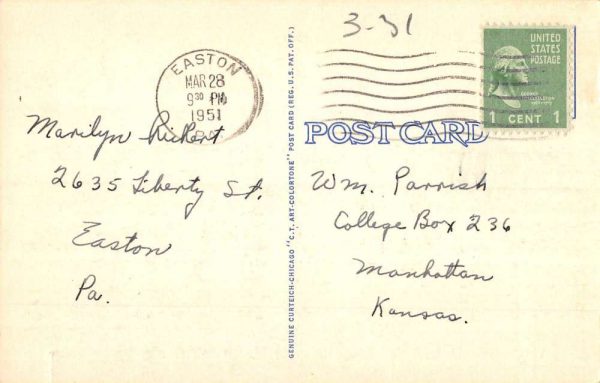 3-31
EASTON
MAR 28
9 30 PM
1951
PA.
UNITED
STATES
POSTAGE
1 CENT 1
POST CARD
Marilyn Rickert
2635 Liberty St.
Easton
Pa.
GENUINE CURTEICH-CHICAGO "C.T. ART-COLORTONE" POST CARD (REG. U.S. PAT. OFF.)
Wm. Parrish
College Box 236
Manhattan
Kansas.